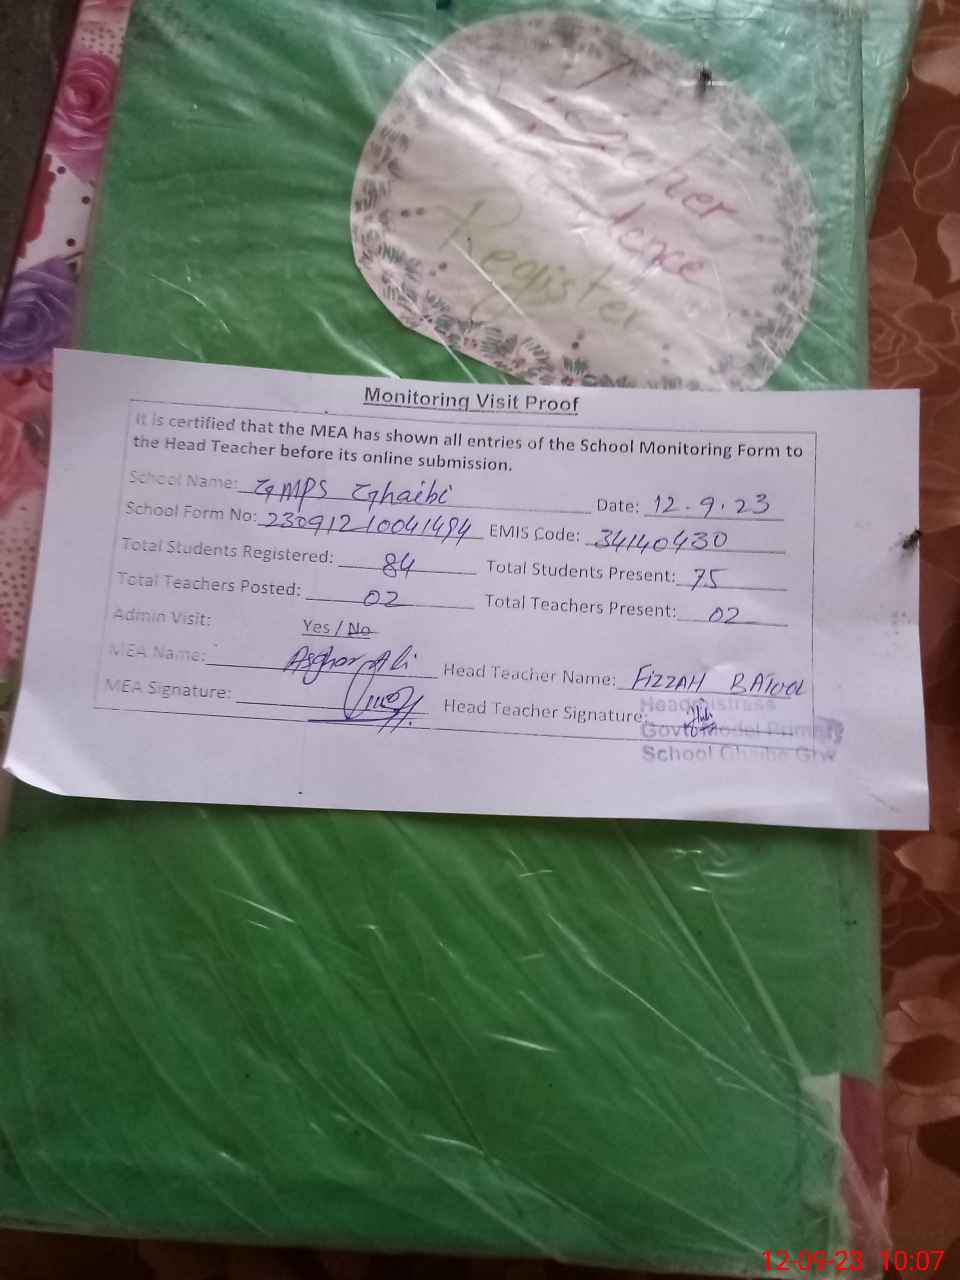 Teacher
Register
Monitoring Visit Proof
It is certified that the MEA has shown all entries of the School Monitoring Form to
the Head Teacher before its online submission.
School Name: GMPS Ghaibi Date: 12.9.23
School Form No: 23091210041494 EMIS Code: 34140430
Total Students Registered: 84 Total Students Present: 75
Total Teachers Posted: 02 Total Teachers Present: 02
Admin Visit: Yes / No
MEA Name: Asghar Ali Head Teacher Name: FIZZAH BATOOL
MEA Signature: Head Teacher Signature:
Headmistress
Govt Model Primary
School Ghaibe Grw
12-09-23 10:07